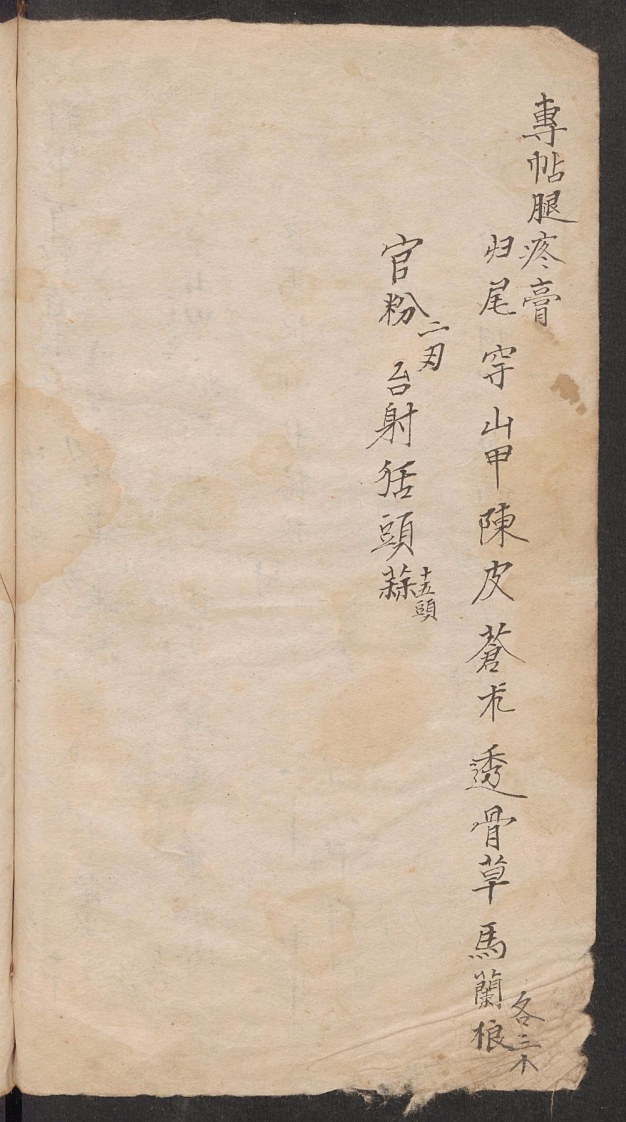 專帖腿疼膏
归尾 穿山甲 陳皮 蒼朮 透骨草 馬蘭根 各三
官粉 二刃 台射 独頭蒜 十五頭